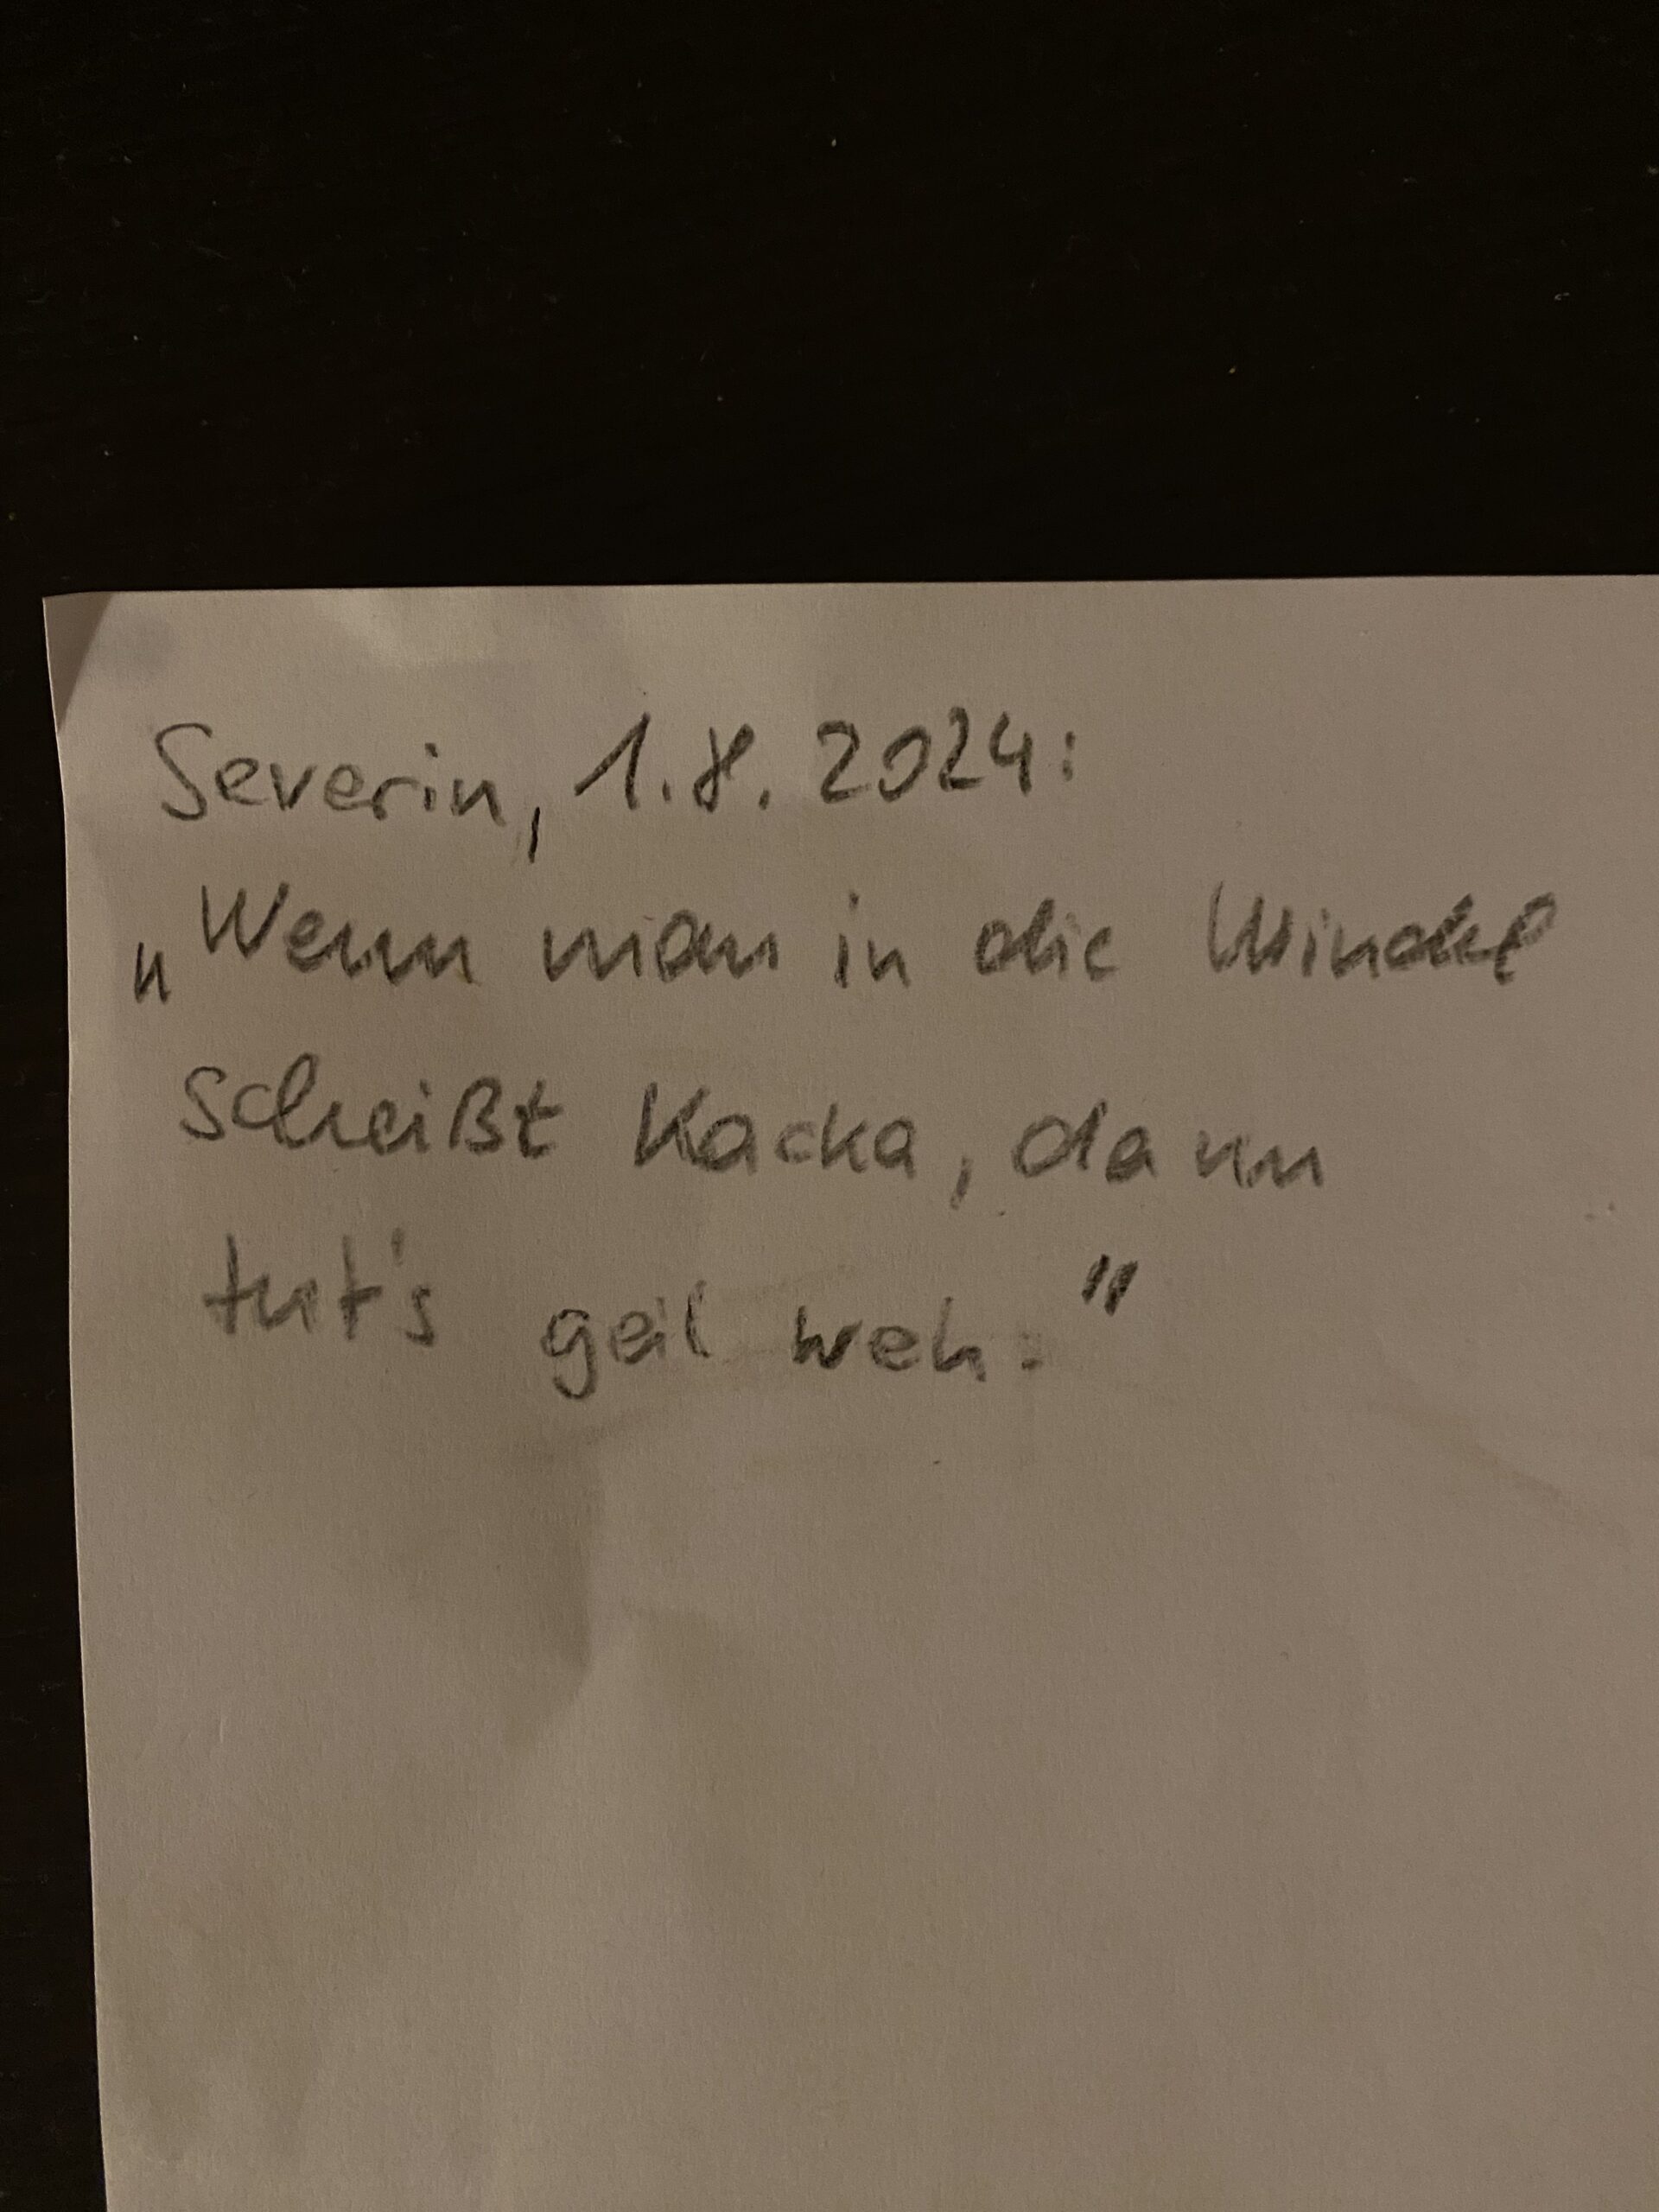 Severin, 1.8.2024:
„Wenn man in die Windel
scheißt Kacka, dann
tut's geil weh."